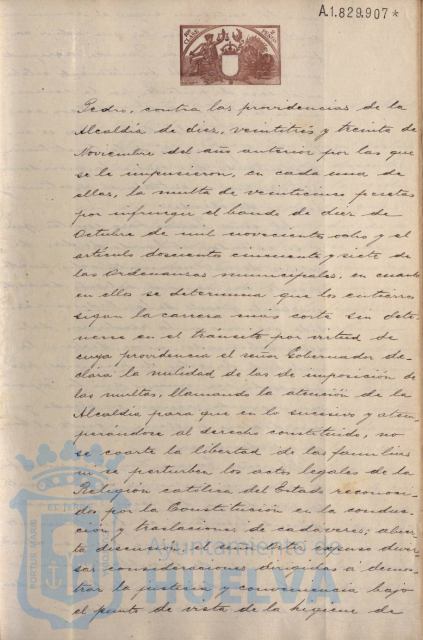 A.1.829.907*
Pedro, contra las providencias de la
Alcaldía de diez, veintitrés y treinta de
Noviembre del año anterior por las que
se le impusieron, en cada una de
ellas, la multa de veinticinco pesetas
por infringir el bando de diez de
Octubre de mil novecientos ocho y el
artículo doscientos cincuenta y siete de
las Ordenanzas municipales, en cuanto
en ellos se determina que los entierros
sigan la carrera mas corta sin dete-
nerse en el tránsito por virtud de
cuya providencia el señor Gobernador de-
clara la nulidad de las de imposición de
las multas, llamando la atención de la
Alcaldía para que en lo sucesivo y atem-
perándose al derecho constituido, no
se coarte la libertad de las familias
ni se perturben los actos legales de la
Religión católica del Estado reconoci-
dos por la Constitución en la conduc-
ción y traslaciones de cadaveres; abier-
ta discusión, el Alcalde expuso diver-
sas consideraciones dirigidas á demos-
trar la justicia y conveniencia bajo
el punto de vista de la higiene de
Ayuntamiento de
HUELVA
PORTUS MARIS